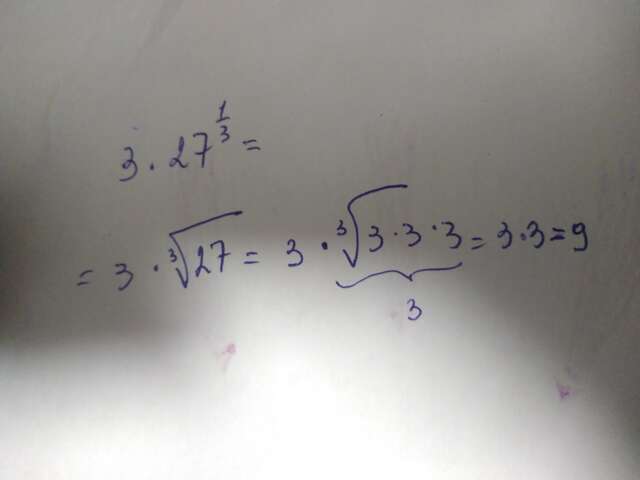 3 · 27^{1/3} =
= 3 · ∛27 = 3 · ∛3·3·3 = 3·3 = 9
3